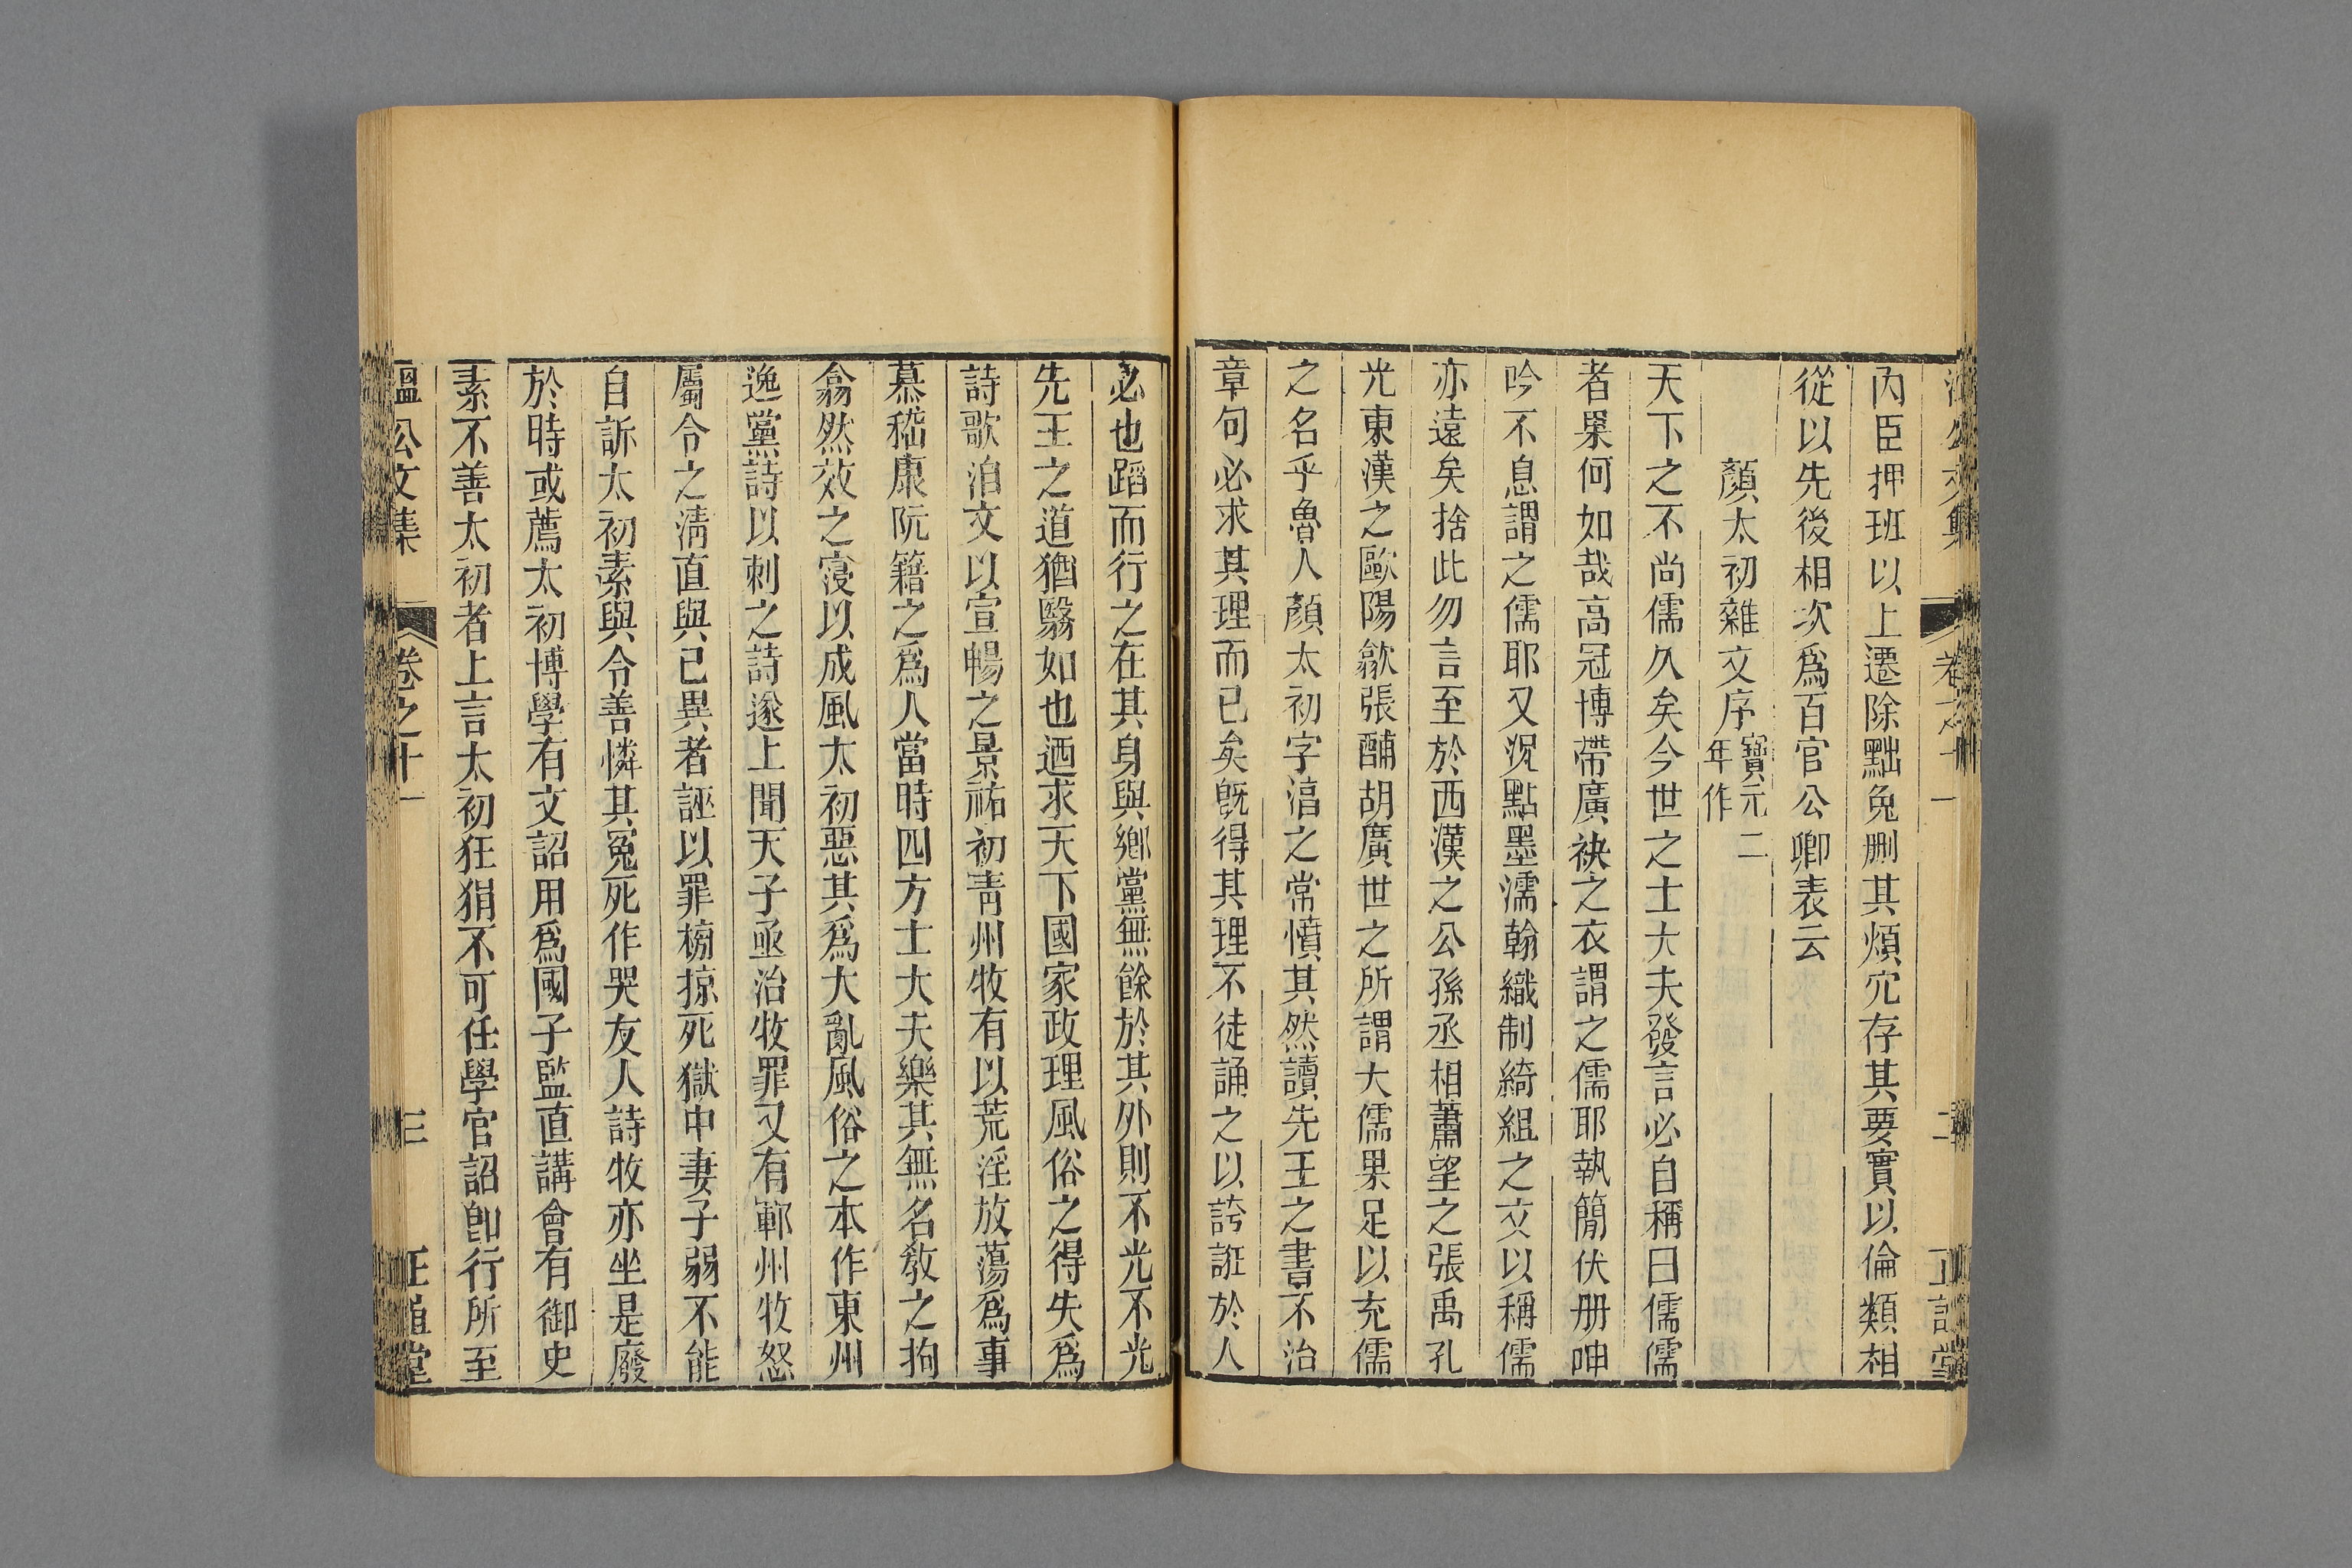 內臣押班以上遷除黜免删其煩宂存其要實以倫類相
從以先後相次爲百官公卿表云
顏太初雜文序寶元二年作
天下之不尚儒久矣今世之士大夫發言必自稱曰儒儒
者果何如哉高冠博帶廣袂之衣謂之儒耶執簡伏册呻
吟不息謂之儒耶又況點墨濡翰織制綺組之文以稱儒
亦遠矣捨此勿言至於西漢之公孫丞相蕭望之張禹孔
光東漢之歐陽歙張酺胡廣世之所謂大儒果足以充儒
之名乎魯人顏太初字湻之常憤其然讀先王之書不治
章句必求其理而已矣旣得其理不徒誦之以誇誑於人
必也蹈而行之在其身與鄉黨無餘於其外則不光不光
先王之道猶翳如也廼求天下國家政理風俗之得失爲
詩歌洎文以宣暢之景祐初靑州牧有以荒淫放蕩爲事
慕嵇康阮籍之爲人當時四方士大夫樂其無名敎之拘
翕然效之寖以成風太初惡其爲大亂風俗之本作東州
逸黨詩以刺之詩遂上聞天子亟治牧罪又有鄆州牧怒
屬令之淸直與己異者誣以罪榜掠死獄中妻子弱不能
自訴太初素與令善憐其冤死作哭友人詩牧亦坐是廢
於時或薦太初博學有文詔用爲國子監直講會有御史
素不善太初者上言太初狂狷不可任學官詔卽行所至
溫公文集 卷之十一 三 正誼堂